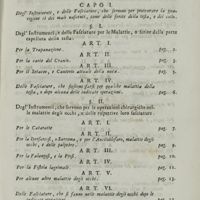 CAPO I.
Degl' Instrumenti, e delle Fasciature, che servono per
de' mali esistenti, come della fronte della testa, e del collo.
§ I.
Degl' Instrumenti, e delle Fasciature per le Malattie, o ferite della parte
capillata della testa.
ART. I.
Per la Trapanazione. pag. 1.
ART. II.
Per le varie del Cranio. pag. 2.
ART. III.
Per il Setaceo, e Cauterio attuale della nuca. pag. 3.
ART. IV.
Delle Fasciature, che sogliono farsi per qualche malattia della
testa, e dopo alcuna delle indicate operazioni. pag. 5.
§. II.
Degl' Instrumenti, che servono per le operazioni chirurgiche nelle
le malattie degli occhi, e delle respettive loro fasciature.
ART. I.
Per le Cateratte pag. 7.
ART. II.
Per lo, e per l' malattie degli
occhi, e delle palpebre. pag. 9.
ART. III.
Per la pag. 10.
ART. IV.
Per la Fistola lagrimale pag. 11.
ART. V.
Per alcune altre malattie degli occhi. pag. 13.
ART. VI.
Delle Fasciature, che si fanno nelle malattie degli occhi dopo le
indicate operazioni. pag. 15.